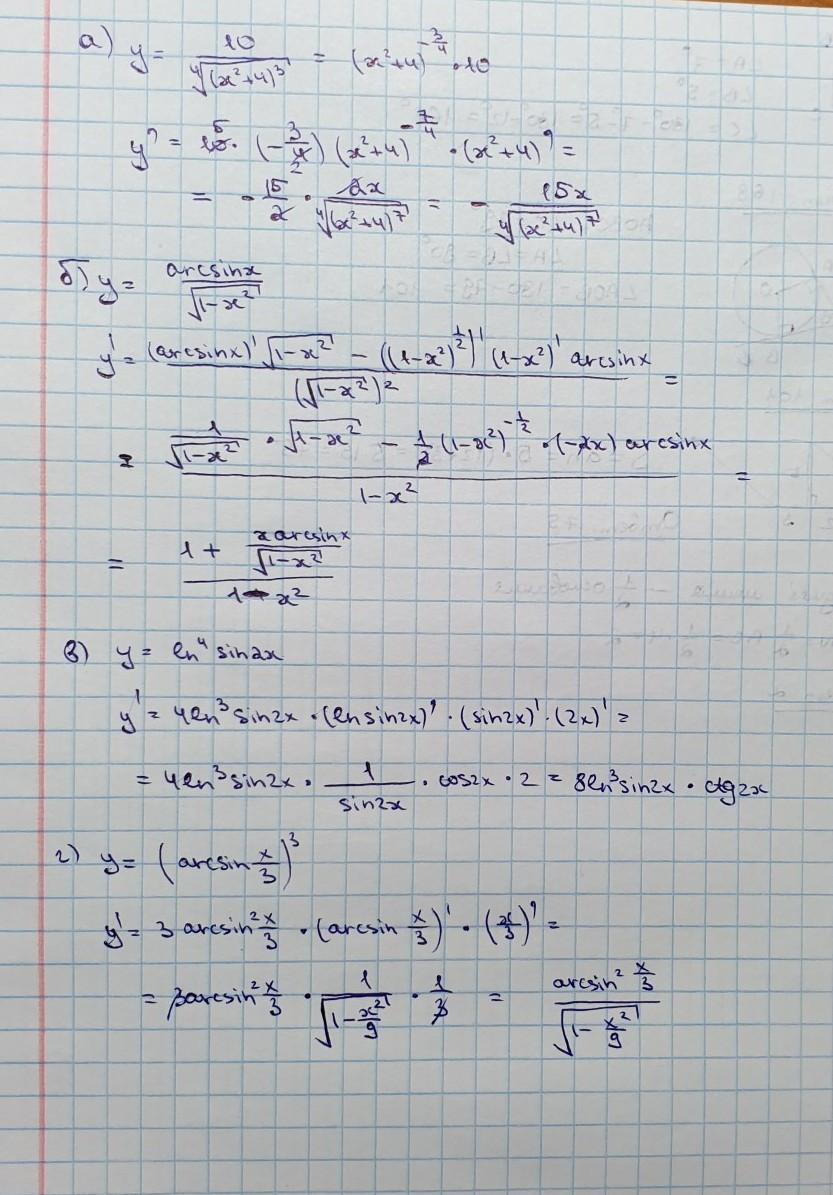 а) y = 10/∜((x²+4)³) = (x²+4)^(-3/4) · 10
y' = 10 · (-3/4) (x²+4)^(-7/4) · (x²+4)' =
= -15/2 · 2x/∜((x²+4)⁷) = - 15x/∜((x²+4)⁷)
б) y = arcsinx/√(1-x²)
y' = ((arcsinx)' √(1-x²) - ((1-x²)^(1/2))' (1-x²)' arcsinx)/(√(1-x²))² =
= (1/√(1-x²) · √(1-x²) - 1/2 (1-x²)^(-1/2) · (-2x) arcsinx)/(1-x²) =
= (1 + x arcsinx/√(1-x²))/(1-x²)
в) y = ln⁴ sin2x
y' = 4ln³ sin2x · (ln sin2x)' · (sin2x)' · (2x)' =
= 4ln³ sin2x · 1/sin2x · cos2x · 2 = 8ln³ sin2x · ctg2x
г) y = (arcsin x/3)³
y' = 3 arcsin² x/3 · (arcsin x/3)' · (x/3)' =
= 3arcsin² x/3 · 1/√(1-x²/9) · 1/3 = arcsin² x/3 / √(1-x²/9)